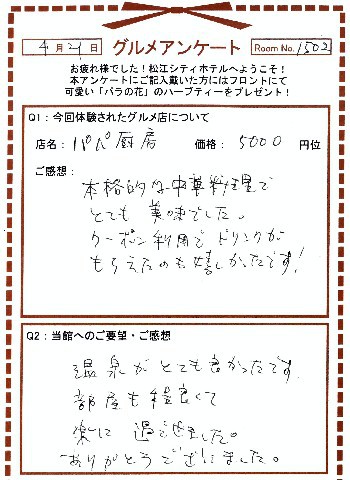 4月21日 グルメアンケート Room No. 1502
お疲れ様でした！松江シティホテルへようこそ！
本アンケートにご記入戴いた方にはフロントにて
可愛い「バラの花」のハーブティーをプレゼント！
Q1：今回体験されたグルメ店について
店名：パパ厨房 価格：5000 円位
ご感想：
本格的な中華料理で
とても美味でした。
クーポン利用でドリンクが
もらえたのも嬉しかったです！
Q2：当館へのご要望・ご感想
温泉がとても良かったです
部屋も程良くて
楽に過ごせました。
ありがとうございました。